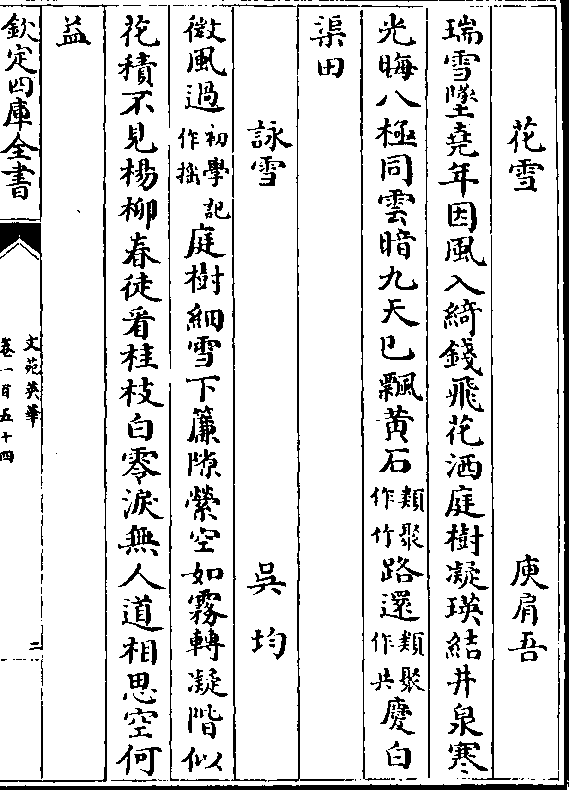 花雪 庾肩吾
瑞雪墜堯年因風入綺錢飛花洒庭樹凝瑛結井泉寒
光晦八極同雲暗九天已飄黄石類聚作竹路還類聚作共慶白
渠田
詠雪 吳均
微風過初學記作揺庭樹細雪下簾隙縈空如霧轉凝階似
花積不見楊柳春徒看桂枝白零淚無人道相思空何
益
欽定四庫全書
文苑英華
卷一百五十四
二